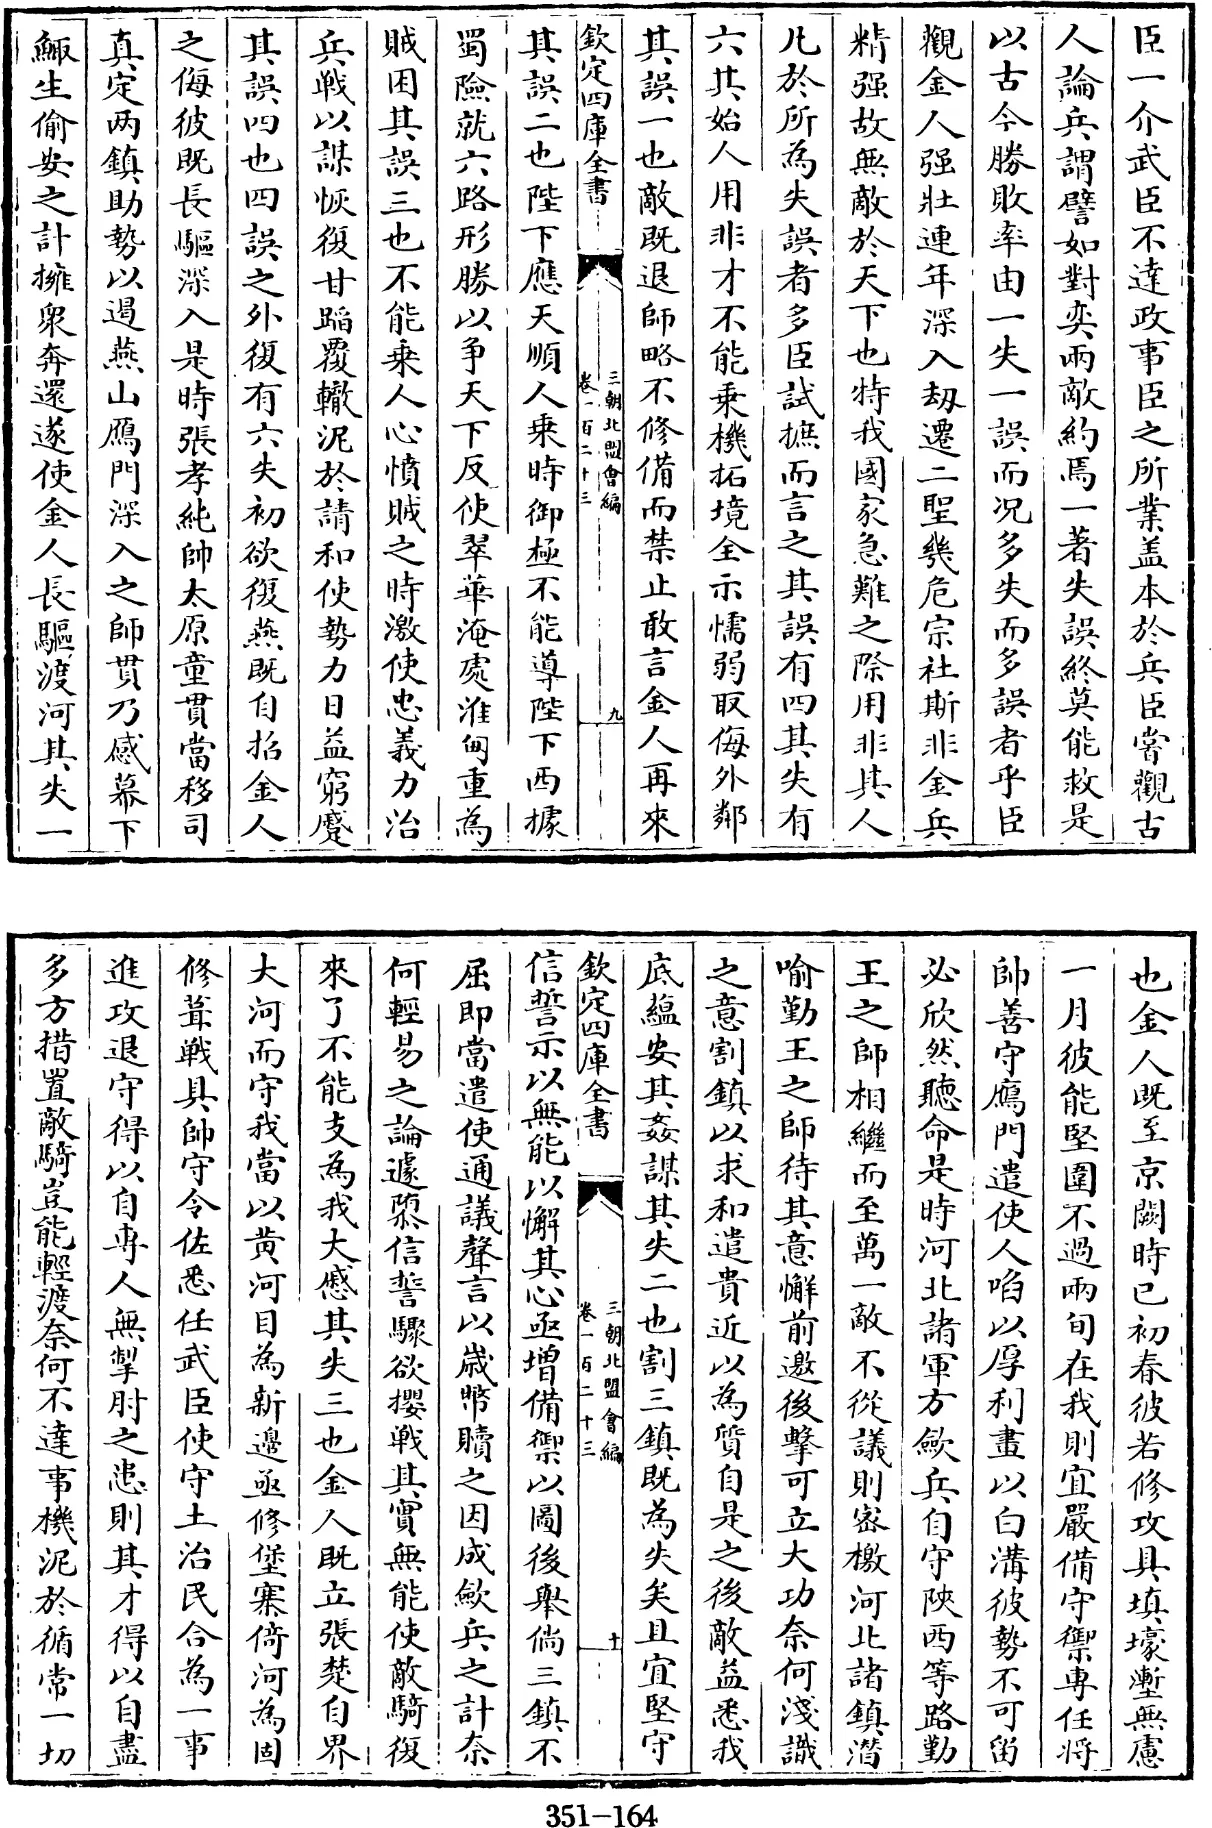 臣一介武臣不達政事臣之所業盖本於兵臣嘗觀古
人論兵謂譬如對奕兩敵約焉一著失誤終莫能救是
以古今勝敗率由一失一誤而况多失而多誤者乎臣
觀金人强壯連年深入刼遷二聖幾危宗社斯非金兵
精强故無敵於天下也特我國家急難之際用非其人
凡於所為失誤者多臣試摭而言之其誤有四其失有
六其始人用非才不能乗機拓境全示懦弱取侮外鄰
其誤一也敵既退師略不修備而禁止敢言金人再來
欽定四庫全書
三朝北盟會編
卷一百二十三
九
其誤二也陛下應天順人乗時御極不能導陛下西據
蜀險就六路形勝以争天下反使翠華淹處淮甸重為
賊困其誤三也不能乗人心憤賊之時激使忠義力治
兵戰以謀恢復甘蹈覆轍泥於請和使勢力日益窮蹙
其誤四也四誤之外復有六失初欲復燕既自招金人
之侮彼既長驅深入是時張孝純帥太原童貫當移司
真定两鎮助勢以遏燕山鴈門深入之師貫乃感幕下
鯫生偷安之計擁衆奔還遂使金人長驅渡河其失一
也金人既至京闕時已初春彼若修攻具填壕壍無慮
一月彼能堅圍不過兩旬在我則宜嚴備守禦專任將
帥善守鴈門遣使人啗以厚利畫以白溝彼勢不可留
必欣然聽命是時河北諸軍方歛兵自守陜西等路勤
王之師相繼而至萬一敵不從議則宻檄河北諸鎮潛
喻勤王之師待其意懈前邀後擊可立大功奈何淺識
之意割鎮以求和遣貴近以為質自是之後敵益悉我
底蘊安其姦謀其失二也割三鎮既為失矣且宜堅守
欽定四庫全書
三朝北盟會編
卷一百二十三
十
信誓示以無能以懈其心亟增備禦以圖後舉倘三鎮不
屈即當遣使通議聲言以歲幣贖之因成歛兵之計奈
何輕易之論遽隳信誓驟欲攖戰其實無能使敵騎復
來了不能支為我大慼其失三也金人既立張楚自界
大河而守我當以黄河目為新邊亟修堡寨倚河為固
修葺戰具帥守令佐悉任武臣使守土治民合為一事
進攻退守得以自専人無掣肘之患則其才得以自盡
多方措置敵騎豈能輕渡奈何不達事機泥於循常一切
351-164